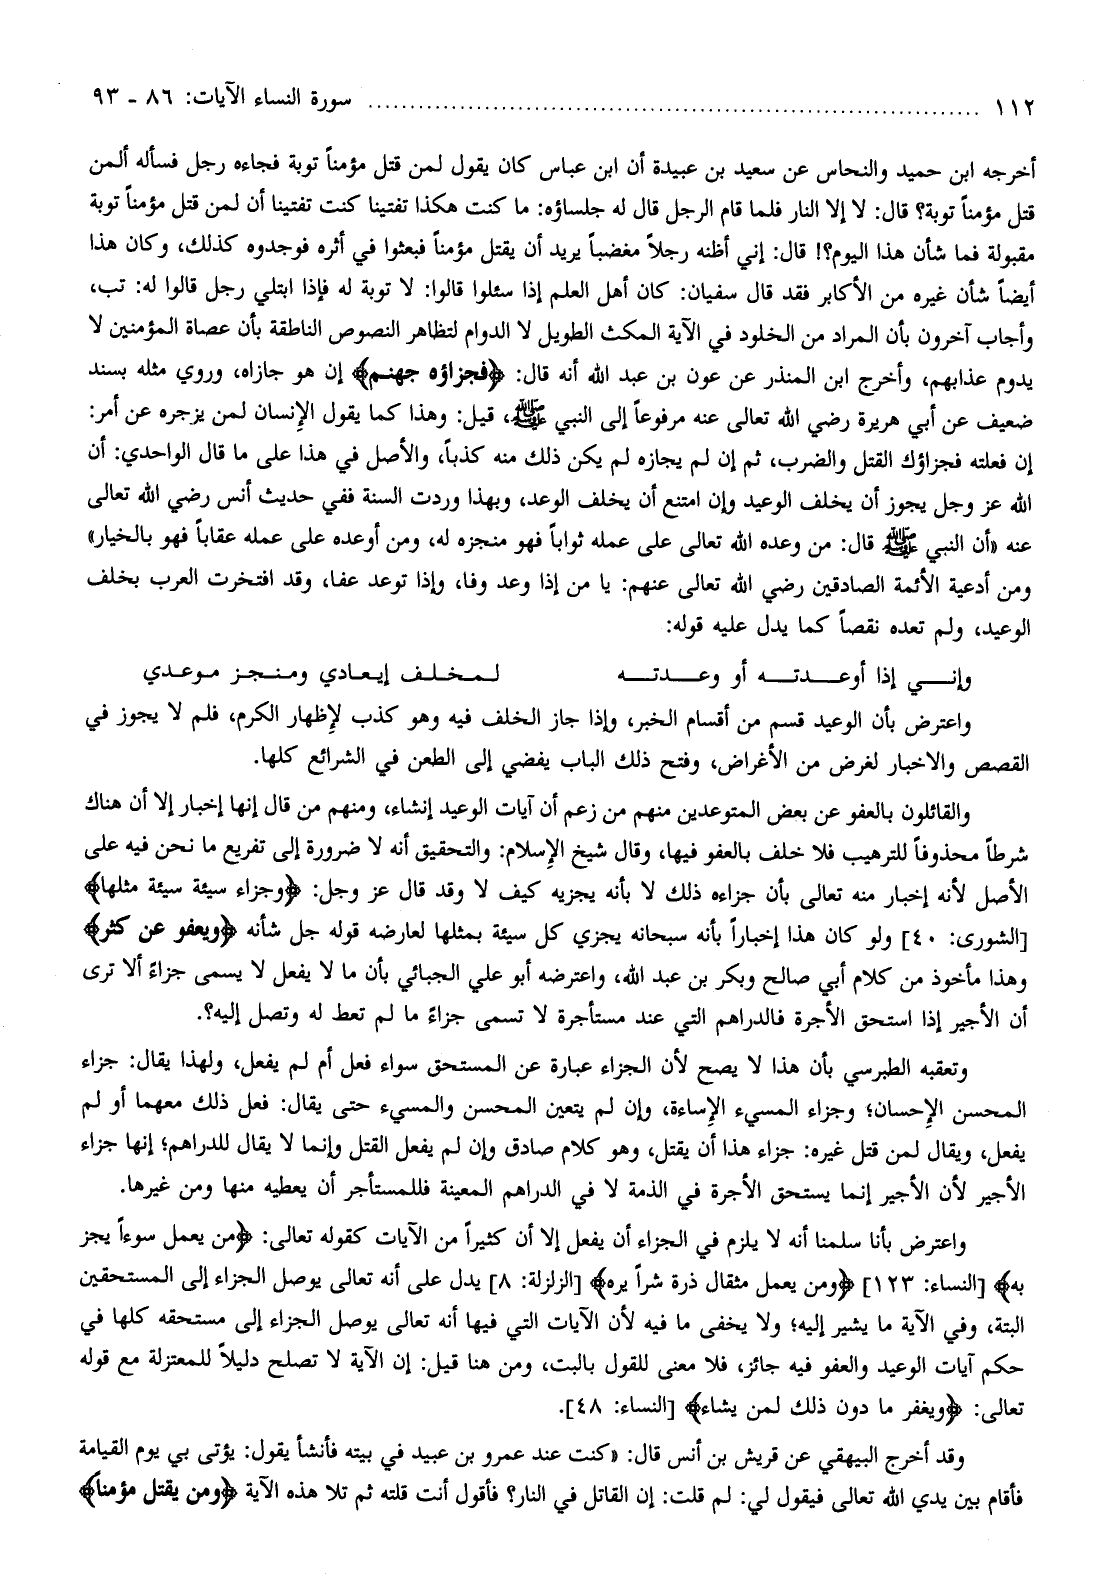 ١١٢ ........................................................................ سورة النساء الآيات: ٨٦ - ٩٣
أخرجه ابن حميد والنحاس عن سعيد بن عبيدة أن ابن عباس كان يقول لمن قتل مؤمناً توبة فجاءه رجل فسأله ألمن
قتل مؤمناً توبة؟ قال: لا إلا النار فلما قام الرجل قال له جلساؤه: ما كنت هكذا تفتينا كنت تفتينا أن لمن قتل مؤمناً توبة
مقبولة فما شأن هذا اليوم؟! قال: إني أظنه رجلاً مغضباً يريد أن يقتل مؤمناً فبعثوا في أثره فوجدوه كذلك، وكان هذا
أيضاً شأن غيره من الأكابر فقد قال سفيان: كان أهل العلم إذا سئلوا قالوا: لا توبة له فإذا ابتلي رجل قالوا له: تب،
وأجاب آخرون بأن المراد من الخلود في الآية المكث الطويل لا الدوام لتظاهر النصوص الناطقة بأن عصاة المؤمنين لا
يدوم عذابهم، وأخرج ابن المنذر عن عون بن عبد الله أنه قال: ﴿فجزاؤه جهنم﴾ إن هو جازاه، وروي مثله بسند
ضعيف عن أبي هريرة رضي الله تعالى عنه مرفوعاً إلى النبي ﷺ، قيل: وهذا كما يقول الإنسان لمن يزجره عن أمر:
إن فعلته فجزاؤك القتل والضرب، ثم إن لم يجازه لم يكن ذلك منه كذباً، والأصل في هذا على ما قال الواحدي: أن
الله عز وجل يجوز أن يخلف الوعيد وإن امتنع أن يخلف الوعد، وبهذا وردت السنة ففي حديث أنس رضي الله تعالى
عنه «أن النبي ﷺ قال: من وعده الله تعالى على عمله ثواباً فهو منجزه له، ومن أوعده على عمله عقاباً فهو بالخيار»
ومن أدعية الأئمة الصادقين رضي الله تعالى عنهم: يا من إذا وعد وفا، وإذا توعد عفا، وقد افتخرت العرب بخلف
الوعيد، ولم تعده نقصاً كما يدل عليه قوله:
وإنــي إذا أوعــدتــه أو وعــدتــه لـمـخـلـف إيـعـادي ومـنـجـز مـوعـدي
واعترض بأن الوعيد قسم من أقسام الخبر، وإذا جاز الخلف فيه وهو كذب لإظهار الكرم، فلم لا يجوز في
القصص والاخبار لغرض من الأغراض، وفتح ذلك الباب يفضي إلى الطعن في الشرائع كلها.
والقائلون بالعفو عن بعض المتوعدين منهم من زعم أن آيات الوعيد إنشاء، ومنهم من قال إنها إخبار إلا أن هناك
شرطاً محذوفاً للترهيب فلا خلف بالعفو فيها، وقال شيخ الإسلام: والتحقيق أنه لا ضرورة إلى تفريع ما نحن فيه على
الأصل لأنه إخبار منه تعالى بأن جزاءه ذلك لا بأنه يجزيه كيف لا وقد قال عز وجل: ﴿وجزاء سيئة سيئة مثلها﴾
[الشورى: ٤٠] ولو كان هذا إخباراً بأنه سبحانه يجزي كل سيئة بمثلها لعارضه قوله جل شأنه ﴿ويعفو عن كثر﴾
وهذا مأخوذ من كلام أبي صالح وبكر بن عبد الله، واعترضه أبو علي الجبائي بأن ما لا يفعل لا يسمى جزاءً ألا ترى
أن الأجير إذا استحق الأجرة فالدراهم التي عند مستأجرة لا تسمى جزاءً ما لم تعط له وتصل إليه؟.
وتعقبه الطبرسي بأن هذا لا يصح لأن الجزاء عبارة عن المستحق سواء فعل أم لم يفعل، ولهذا يقال: جزاء
المحسن الإحسان؛ وجزاء المسيء الإساءة، وإن لم يتعين المحسن والمسيء حتى يقال: فعل ذلك معهما أو لم
يفعل، ويقال لمن قتل غيره: جزاء هذا أن يقتل، وهو كلام صادق وإن لم يفعل القتل وإنما لا يقال للدراهم؛ إنها جزاء
الأجير لأن الأجير إنما يستحق الأجرة في الذمة لا في الدراهم المعينة فللمستأجر أن يعطيه منها ومن غيرها.
واعترض بأنا سلمنا أنه لا يلزم في الجزاء أن يفعل إلا أن كثيراً من الآيات كقوله تعالى: ﴿من يعمل سوءاً يجز
به﴾ [النساء: ١٢٣] ﴿ومن يعمل مثقال ذرة شراً يره﴾ [الزلزلة: ٨] يدل على أنه تعالى يوصل الجزاء إلى المستحقين
البتة، وفي الآية ما يشير إليه؛ ولا يخفى ما فيه لأن الآيات التي فيها أنه تعالى يوصل الجزاء إلى مستحقه كلها في
حكم آيات الوعيد والعفو فيه جائز، فلا معنى للقول بالبت، ومن هنا قيل: إن الآية لا تصلح دليلاً للمعتزلة مع قوله
تعالى: ﴿ويغفر ما دون ذلك لمن يشاء﴾ [النساء: ٤٨].
وقد أخرج البيهقي عن قريش بن أنس قال: «كنت عند عمرو بن عبيد في بيته فأنشأ يقول: يؤتى بي يوم القيامة
فأقام بين يدي الله تعالى فيقول لي: لم قلت: إن القاتل في النار؟ فأقول أنت قلته ثم تلا هذه الآية ﴿ومن يقتل مؤمناً﴾